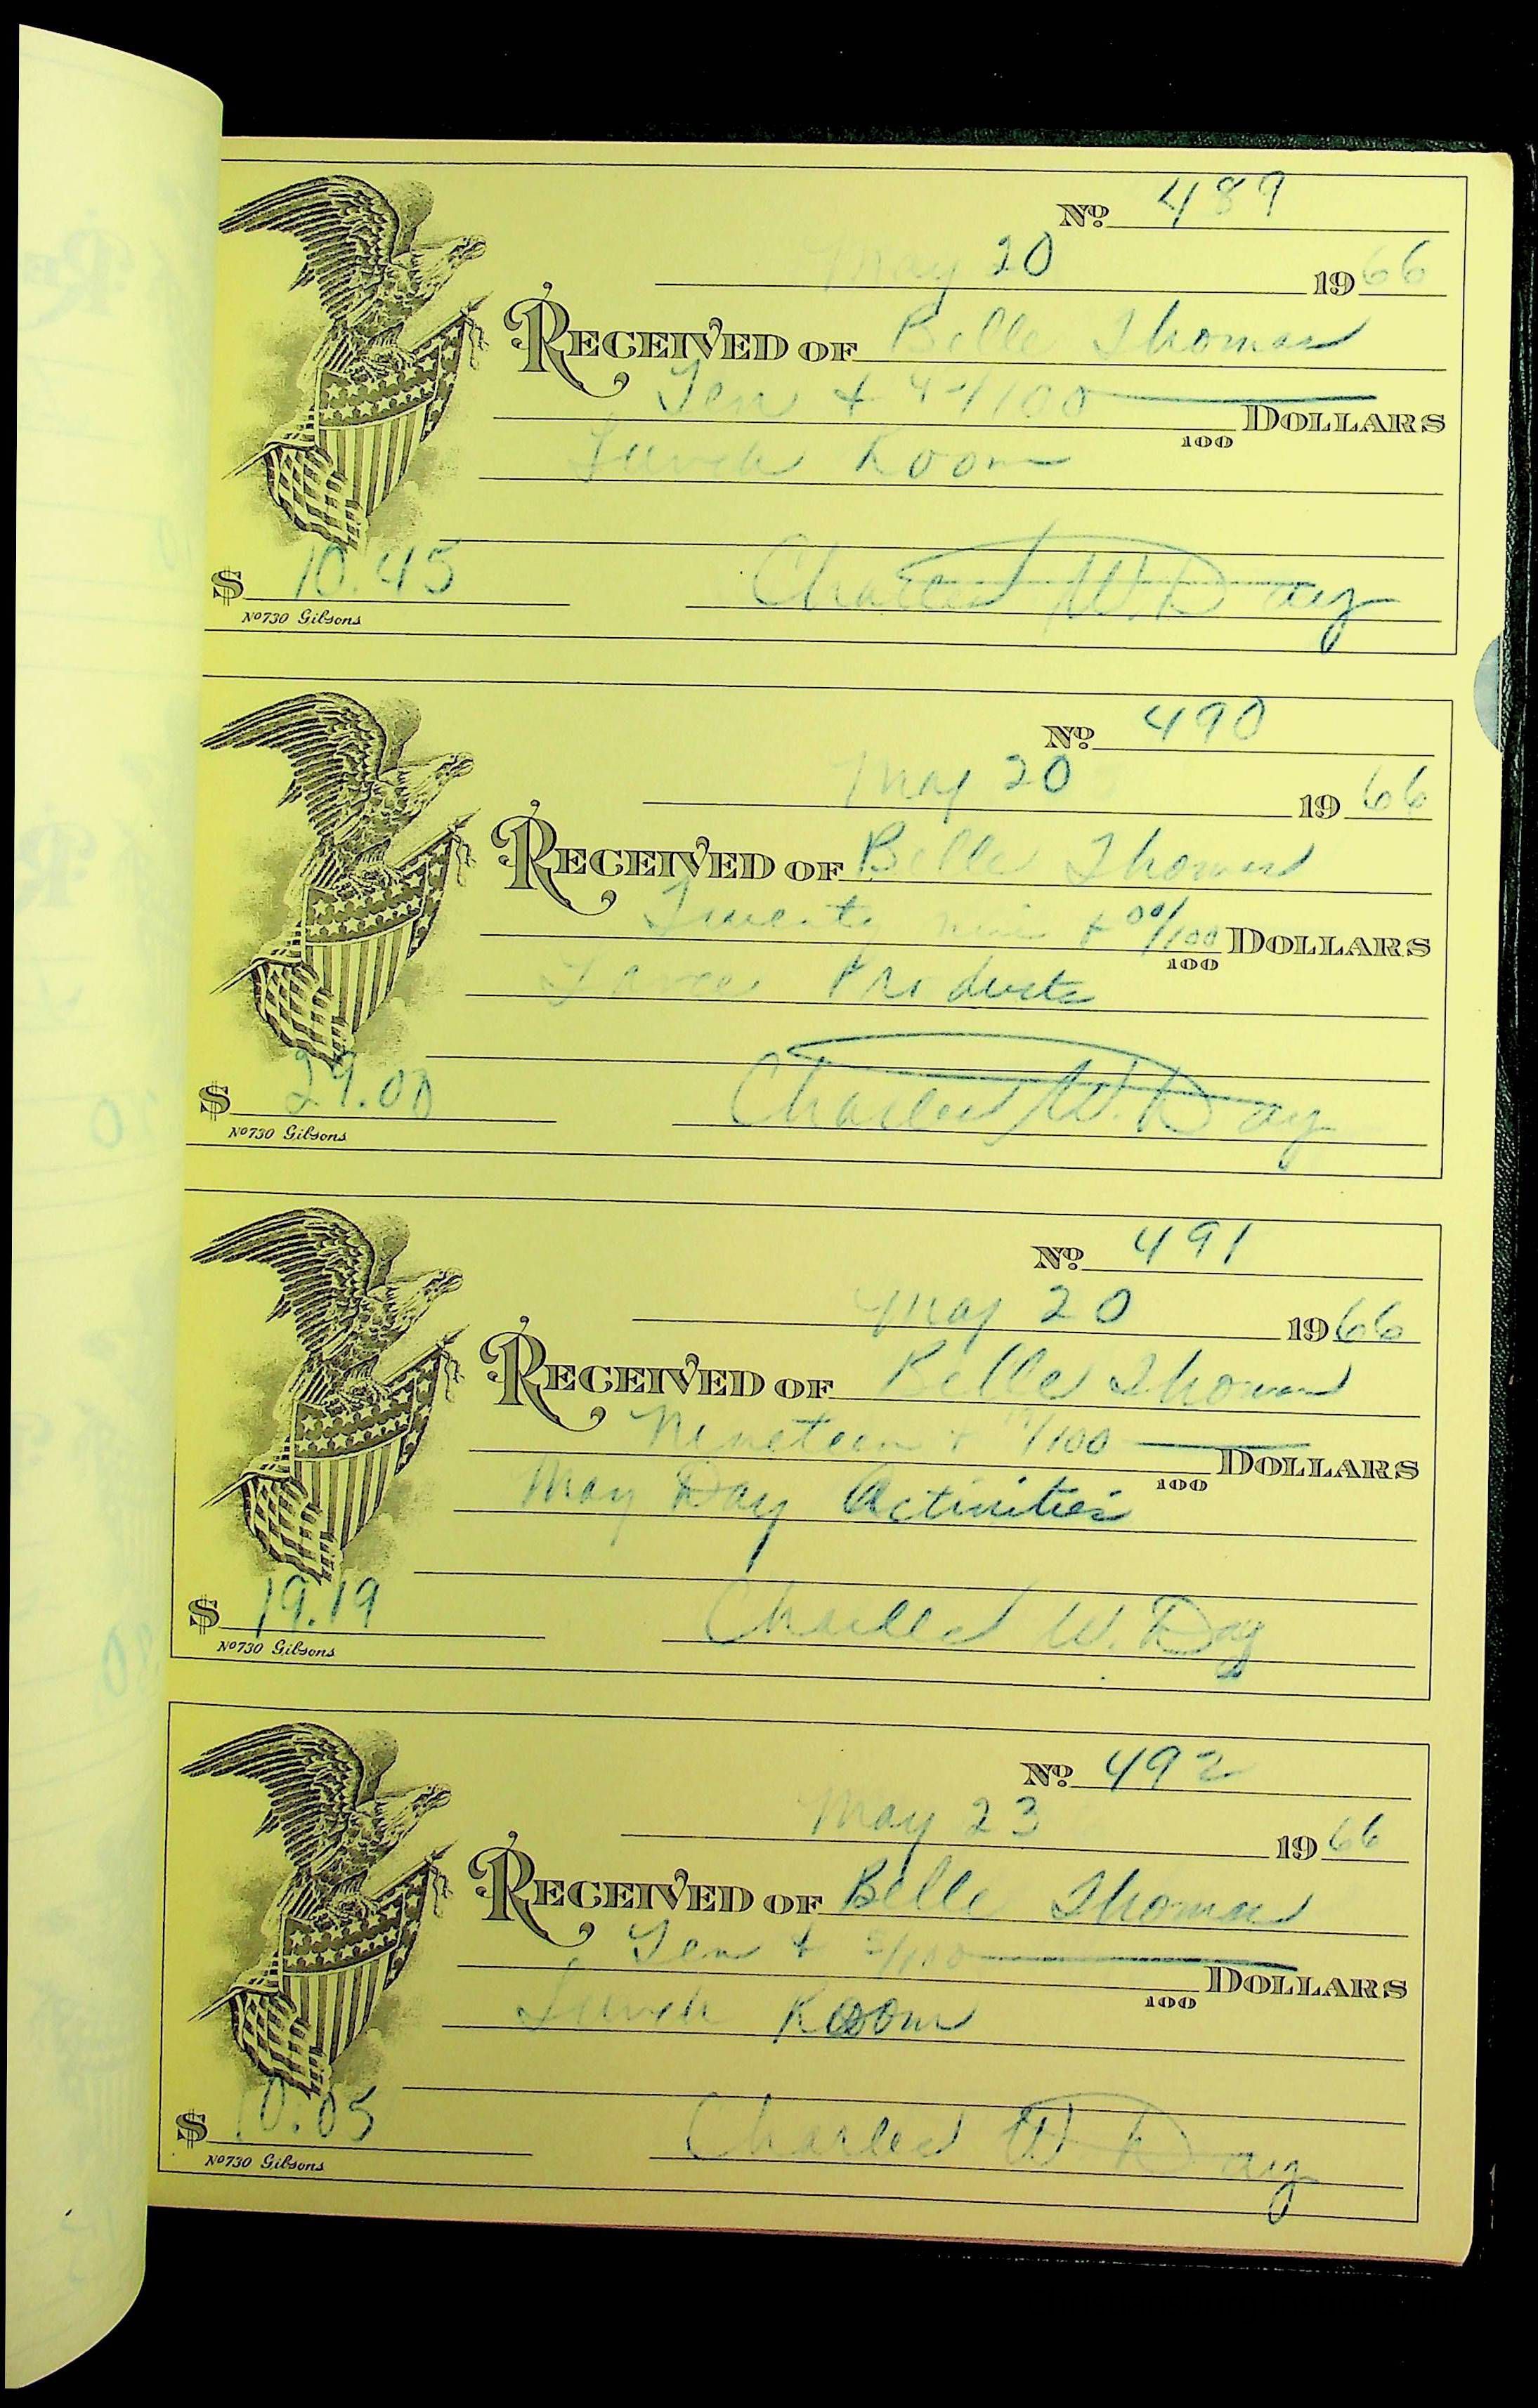 No. 489
May 20 1966
RECEIVED OF Belle Thomas
Ten + 45/100 DOLLARS
100
Lunch Room
$ 10.45 Charles W. Day
No 730 Gibsons
No. 490
May 20 1966
RECEIVED OF Belle Thomas
Twenty nine + 00/100 DOLLARS
100
Products
$ 29.00 Charles W. Day
No 730 Gibsons
No. 491
May 20 1966
RECEIVED OF Belle Thomas
Nineteen + 19/100 DOLLARS
100
May Day Activities
$ 19.19 Charles W. Day
No 730 Gibsons
No. 492
May 23 1966
RECEIVED OF Belle Thomas
Ten + 5/100 DOLLARS
100
Lunch Room
$ 10.05 Charles W Day
No 730 Gibsons